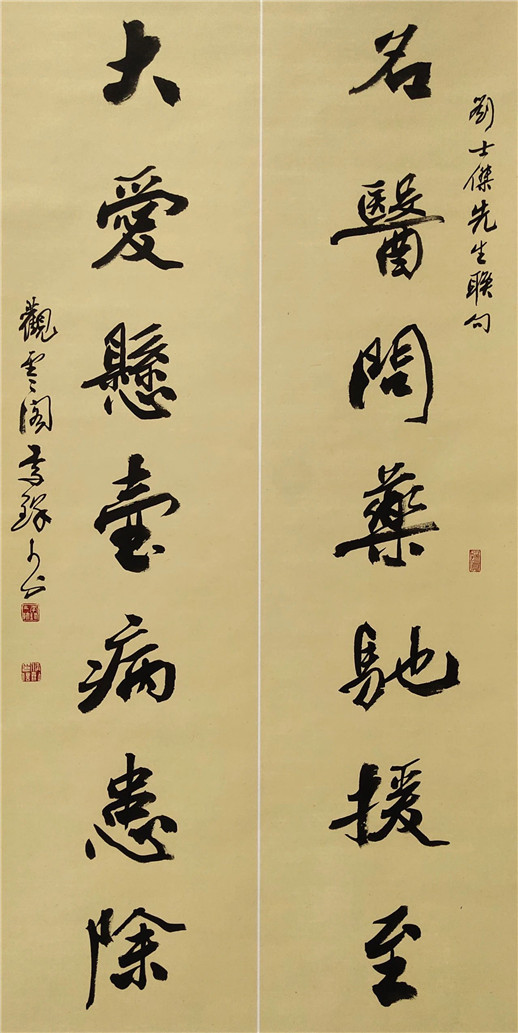 劉士傑先生聯句
名醫問藥馳援至
大愛懸壺病患除
觀雲閣